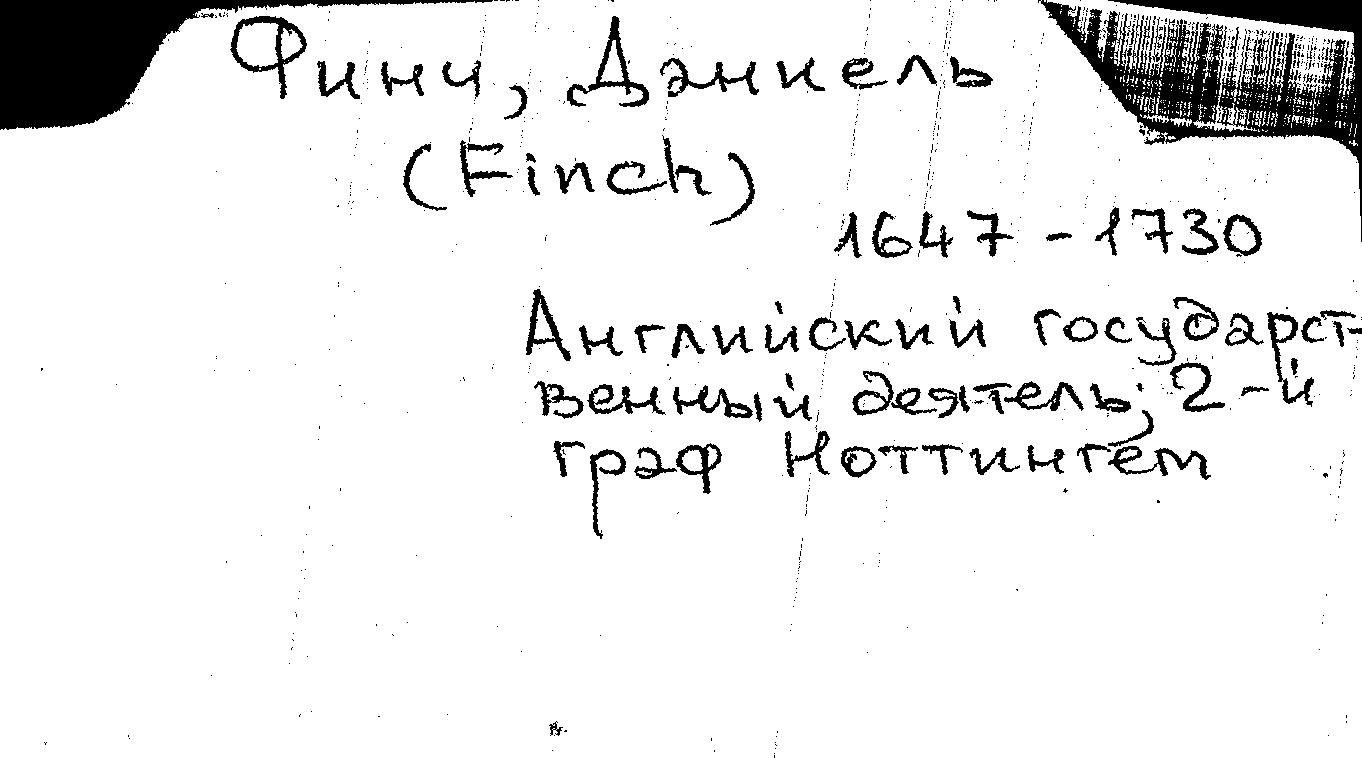 Финч, Дэниель
(Finch)
1647 - 1730
Английский государст-
венный деятель; 2-й
граф Ноттингем